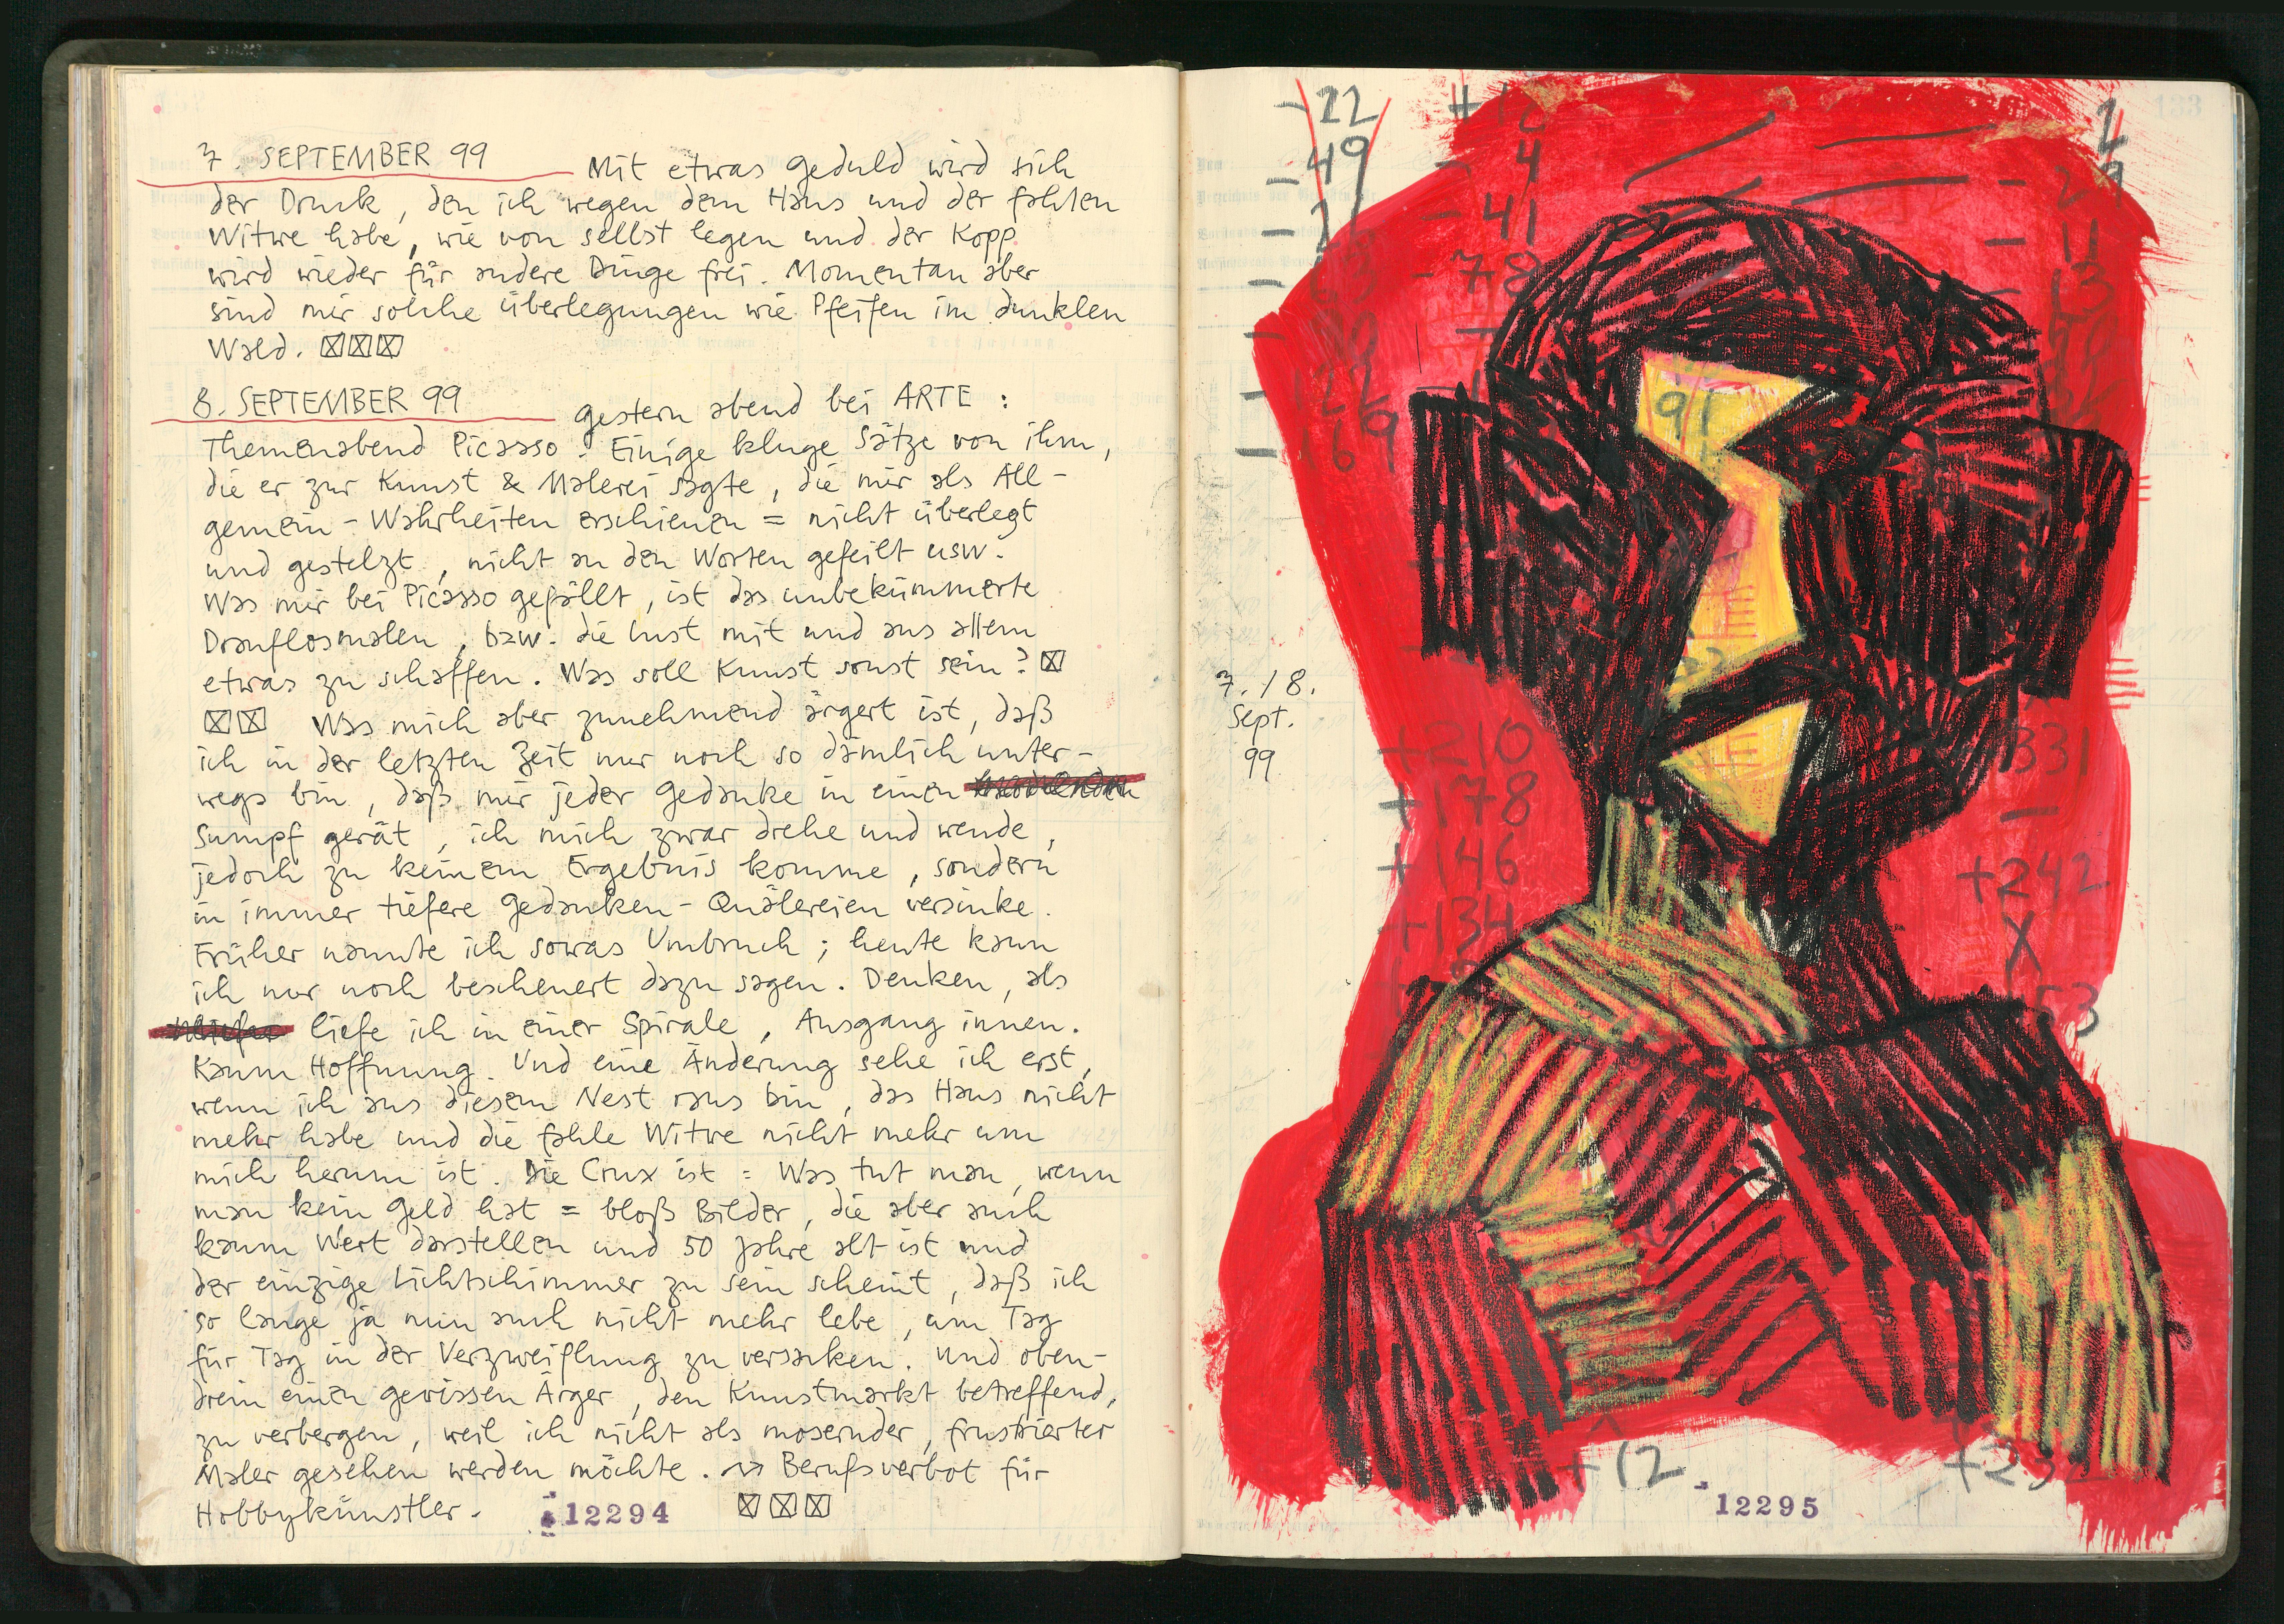 7. SEPTEMBER 99 Mit etwas Geduld wird sich
der Druck, den ich wegen dem Haus und der fahlen
Witwe habe, wie von selbst legen und der Kopp
wird wieder für andere Dinge frei. Momentan aber
sind mir solche Überlegungen wie Pfeifen im dunklen
Wald. ☒☒☒
8. SEPTEMBER 99 gestern abend bei ARTE :
Themenabend Picasso. Einige kluge Sätze von ihm,
die er zur Kunst & Malerei sagte, die mir als All-
gemein-Wahrheiten erschienen = nicht überlegt
und gestelzt, nicht an den Worten gefeilt usw.
Was mir bei Picasso gefällt, ist das unbekümmerte
Drauflosmalen, bzw. die Lust mit und aus allem
etwas zu schaffen. Was soll Kunst sonst sein? ☒
☒☒ Was mich aber zunehmend ärgert ist, daß
ich in der letzten Zeit nur noch so dämlich unter-
wegs bin, daß mir jeder Gedanke in einen
Sumpf gerät, ich mich zwar drehe und wende,
jedoch zu keinem Ergebnis komme, sondern
in immer tiefere Gedanken-Quälereien versinke.
Früher nannte ich sowas Umbruch; heute kann
ich nur noch bescheuert dazu sagen. Denken, als
liefe ich in einer Spirale, Ausgang innen.
Kaum Hoffnung. Und eine Änderung sehe ich erst,
wenn ich aus diesem Nest raus bin, das Haus nicht
mehr habe und die fahle Witwe nicht mehr um
mich herum ist. Die Crux ist: Was tut man, wenn
man kein Geld hat = bloß Bilder, die aber auch
kaum Wert darstellen und 50 Jahre alt ist und
der einzige Lichtschimmer zu sein scheint, daß ich
so lange ja nun auch nicht mehr lebe, um Tag
für Tag in der Verzweiflung zu versacken. Und oben-
drein einen gewissen Ärger, den Kunstmarkt betreffend,
zu verbergen, weil ich nicht als mosernder, frustrierter
Maler gesehen werden möchte. Berufsverbot für
Hobbykünstler. 12294 ☒☒☒
-22
-49
+12
- 4
- 41
- 78
- 122
- 169
- 11
91
7./8.
Sept.
99
+210
+178
+146
+134
331
-
+242
X
53
+12
12295